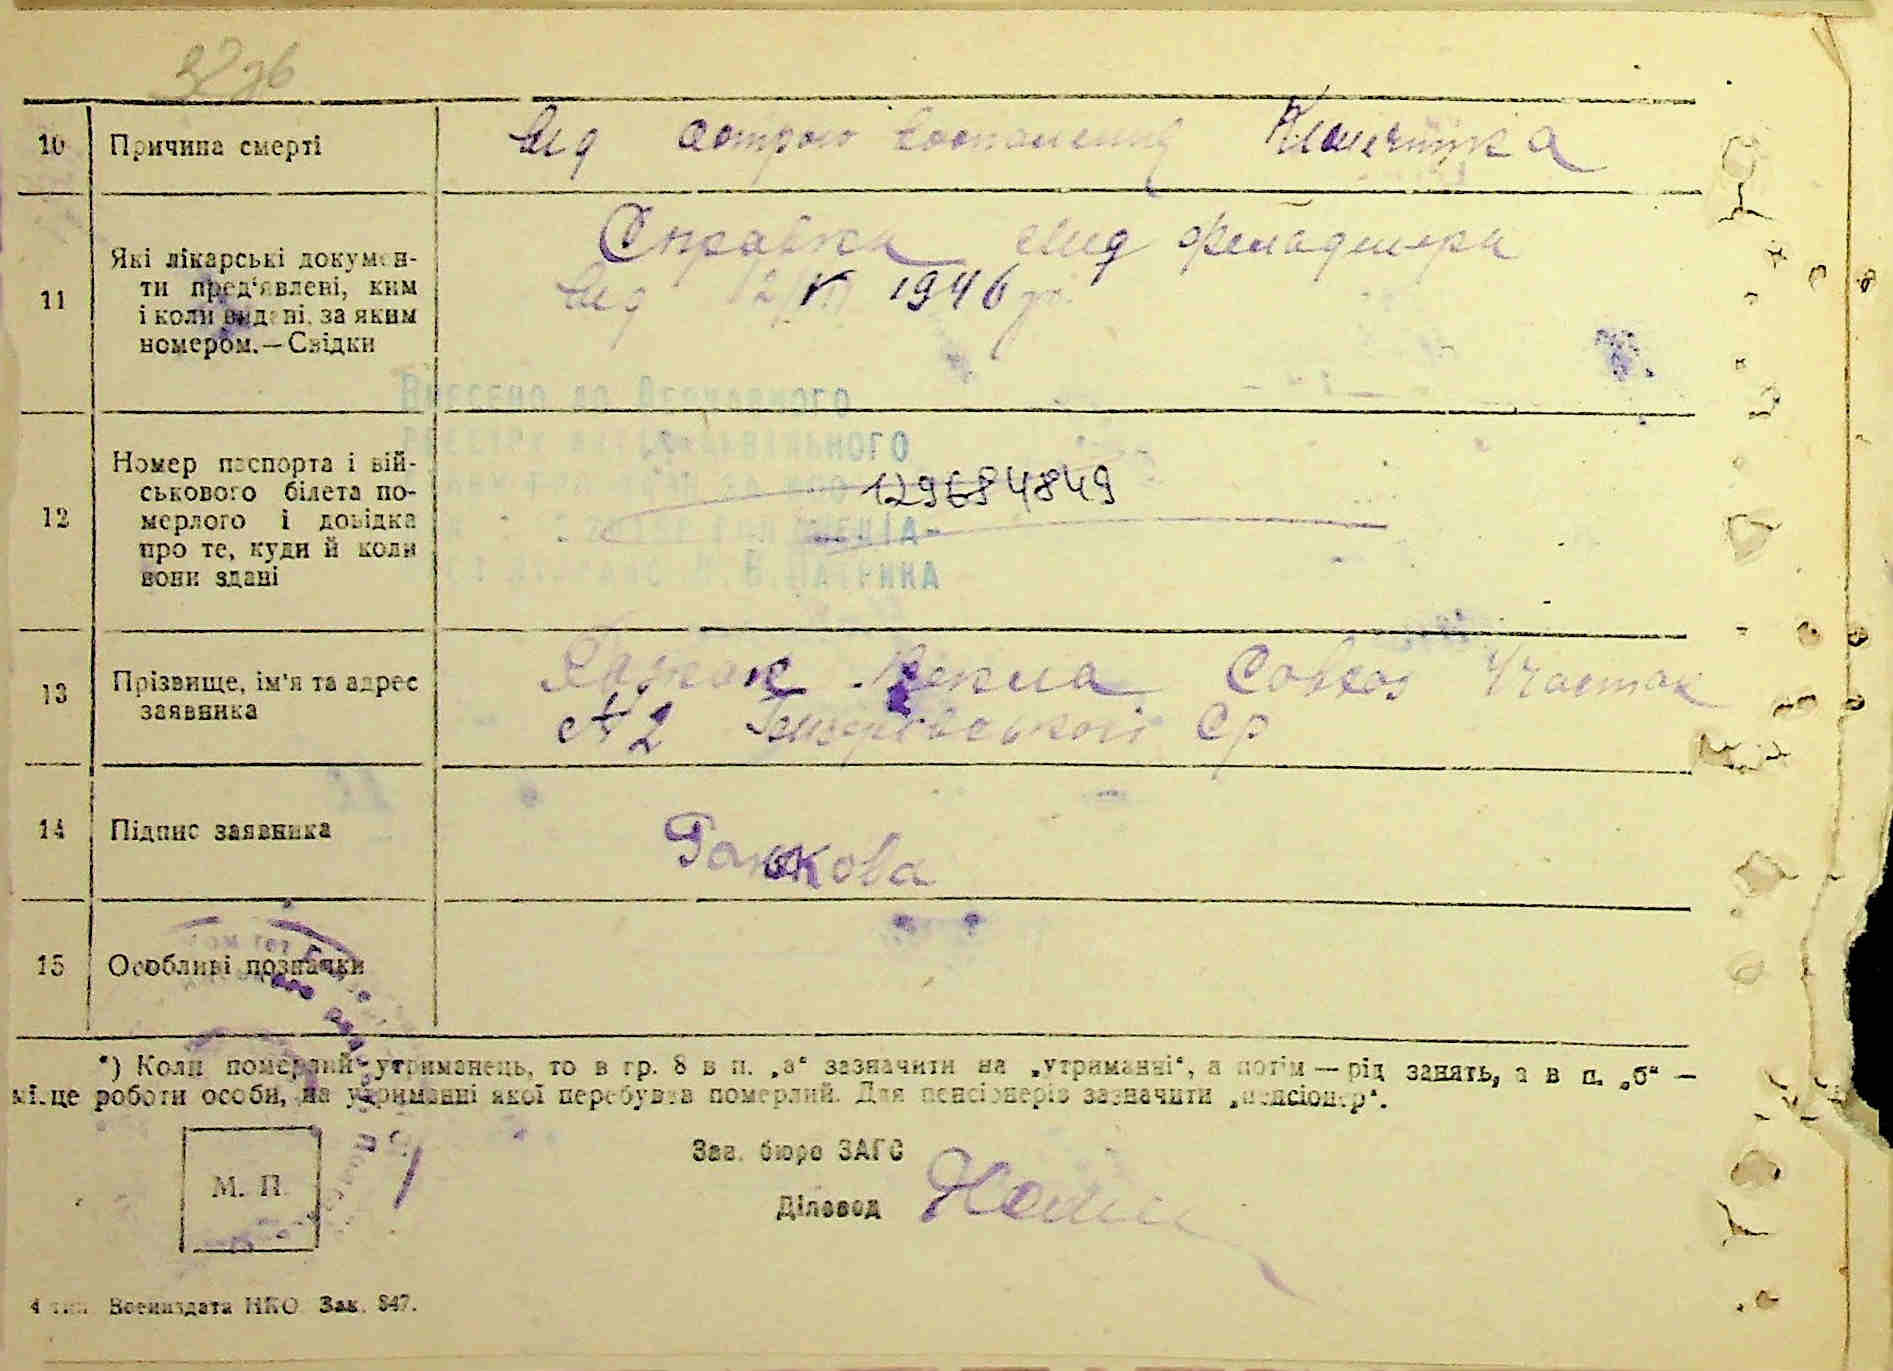 10 Причина смерті
Від острого воспаления Кишечника
11 Які лікарські докумен-
ти пред'явлені, ким
і коли видані, за яким
номером.—Свідки
Справка від фельдшера
від 12/VI 1946 р.
Внесено до Державного
реєстру актів цивільного
12 Номер паспорта і вій-
ськового білета по-
мерлого і довідка
про те, куди й коли
вони здані
129684849
13 Прізвище, ім'я та адрес
заявника
Текла Совхоз Участок
№2 Ср
14 Підпис заявника
15 Особливі позначки
*) Коли померлий утриманець, то в гр. 8 в п. „а“ зазначити на „утриманні“, а потім — рід занять, а в п. „б“ —
місце роботи особи, на утриманні якої перебував померлий. Для пенсіонерів зазначити „пенсіонер“.
М. П.
Зав. бюро ЗАГС
Діловод
4 тип. Воениздата НКО Зак. 847.